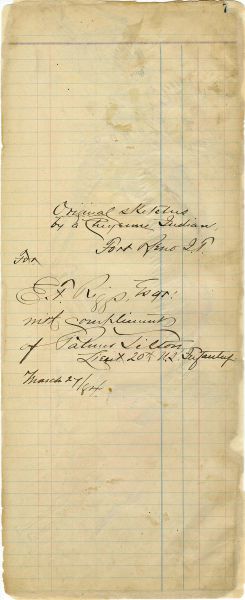 7
Original Sketches
by a Cheyenne Indian,
Fort Reno I.T.
For
E. F. Riggs, Esqr.
most compliments
of Palmer Tilton
Lieut 20th U.S. Infantry
March 27/84